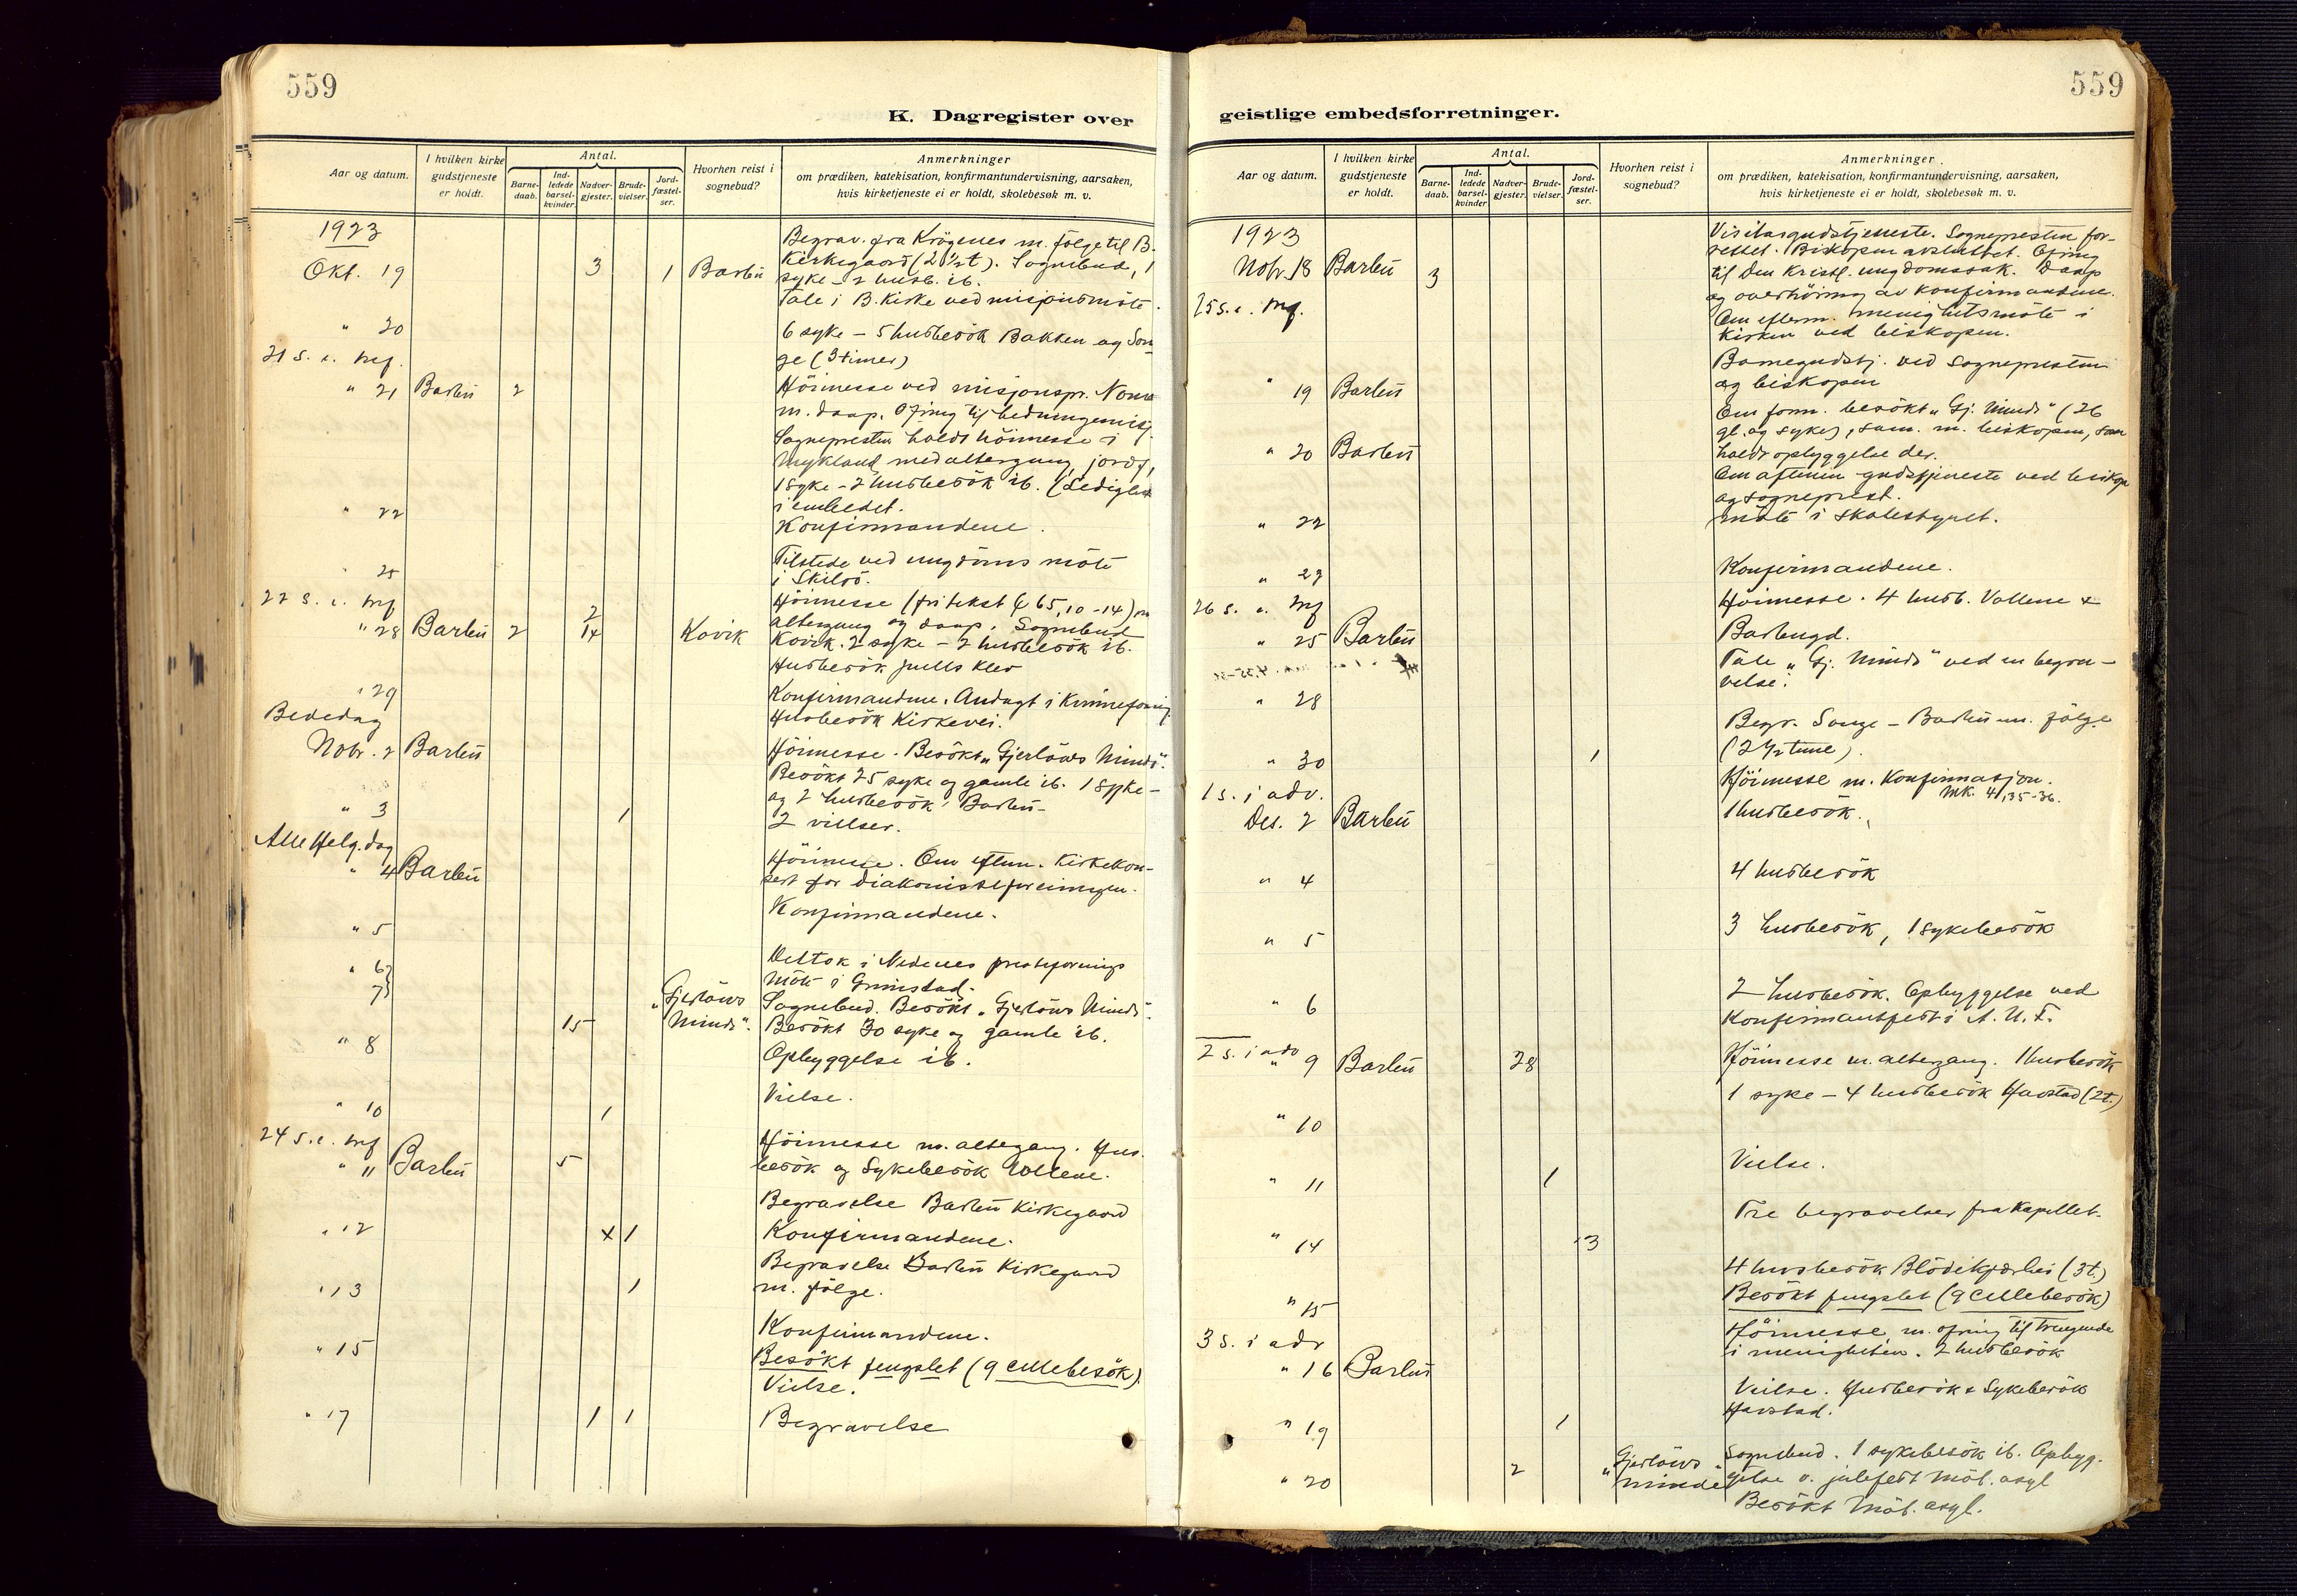 559
K. Dagregister over
Aar og datum.
I hvilken kirke gudstjeneste er holdt.
Antal.
Barne-daab.
Ind-ledede barsel-kvinder.
Nadver-gjester.
Brude-vielser.
Jord-fæstel-ser.
Hvorhen reist i sognebud?
Anmerkninger
om prædiken, katekisation, konfirmantundervisning, aarsaken,
hvis kirketjeneste ei er holdt, skolebesøk m. v.
1923
Okt. 19 3 1 Barbu
Begrav. fra Krögenes m. følge til B.
Kirkegaard (2 1/2 t). Sognebud, 1
syke - 2 husb. ib.
Tale i B. Kirke ved misjonsmöte.
" 20
6 syke - 5 husbesök Bakken og Son
ge (3 timer)
21 s. e. trf.
" 21 Barbu 2
Höimesse ved misjonspr.
m. daap. Ofring til hedningemisj.
Sognepresten holdt höimesse i
Mykland med altergang, jordf,
1 syke - 2 husbesök ib. (Ledighet
i embedet.
" 22
Konfirmandene.
" 25
Tilstede ved ungdoms möte
i Skilsö.
22 s. e. trf
" 28 Barbu 2 2 14 Kovik
Höimesse (fri tekst 65,10-14) m
altergang og daap. Sognebud
Kovik. 2 syke - 2 husbesök ib.
Husbesök Kler
" 29
Konfirmandene. Andagt i Kvinneforening.
Husbesök Kirkevei.
Bededag
Nobr. 2 Barbu
Höimesse. Besökt "Gjerlöws Minde".
Besökt 25 syke og gamle ib. 1 syke-
og 2 husbesök Barbu-
" 3 1
2 vielser.
Alle Helg. dag
" 4 Barbu
Höimesse. Om efterm. Kirkekon-
sert for diakonisseforeningen.
" 5
Konfirmandene.
" 6
7
Deltok i Nedenes presteforenings
möte i Grimstad.
" 8 15 "Gjerlöws Minde".
Sognebud. Besökt "Gjerlöws Minde".
Besökt 30 syke og gamle ib.
Opbyggelse ib.
" 10 1
Vielse.
24 s. e. trf
" 11 Barbu 5
Höimesse m. altergang. Hus.
besök og Sykebesök Vollene.
" 12 x 1
Begravelse Barbu Kirkegaard
Konfirmandene.
" 13 1
Begravelse Barbu Kirkegaard
m. fölge.
" 15
Konfirmandene.
Besökt fengslet (9 cellebesök).
" 17 1 1
Vielse.
Begravelse
559
geistlige embedsforretninger.
Aar og datum.
I hvilken kirke gudstjeneste er holdt.
Antal.
Barne-daab.
Ind-ledede barsel-kvinder
Nadver-gjester.
Brude-vielser.
Jord-fæstel-ser.
Hvorhen reist i sognebud?
Anmerkninger.
om prædiken, katekisation, konfirmantundervisning, aarsaken,
hvis kirketjeneste ei er holdt, skolebesøk m. v.
1923
Nobr. 18 Barbu 3
25 s. e. trf.
Visitasgudstjeneste. Sognepresten for-
rettet. Biskopen avsluttet. Ofring
til den kristl. ungdomssak. Daap
og overhöring av konfirmandene.
Om efterm. menighetsmöte i
Kirken ved biskopen.
" 19 Barbu
Barnegudstj. ved sognepresten
og biskopen
" 20 Barbu
Om form. besökt "Gj. Minde" (26
gl. og syke), sam. m. biskopen, som
holdt opbyggelse der.
Om aftenen gudstjeneste ved biskop
og sogneprest.
" 22
möte i skolestyret.
" 23
Konfirmandene.
26 s. e. trf
" 25 Barbu
Höimesse. 4 husb. Vollene &
Barbugd.
" 28
Tale "Gj. Minde" ved en begra-
velse.
" 30 1
Begr. Songe - Barbu m. fölge
(2 1/2 time).
1 s. i adv.
Des. 2 Barbu
Höimesse m. konfirmasjon.
Mk. 4,35-36.
1 husbesök.
" 4
4 husbesök
" 5
3 husbesök, 1 sykebesök
" 6
2 husbesök. Opbyggelse ved
Konfirmantfest i A. U. F.
2 s. i adv
" 9 Barbu 28
Höimesse m. altergang. 1 husbesök
" 10
1 syke - 4 husbesök Havstad (2t.)
" 11 1
Vielse.
" 14 3
Tre begravelser fra Kapellet.
" 15
4 husbesök Blödekjærhei (3t.)
Besökt fengslet (9 cellebesök)
3 s. i adv
" 16 Barbu
Höimesse, m. ofring til trengende
i menigheten. 2 husbesök
" 19 1
Vielse. Husbesök & Sykebesök
Havstad.
" 20 2 "Gjerlöws Minde"
Sognebud. 1 sykebesök ib. Opbyg-
gelse v. julefest asyl
Besökt asyl.